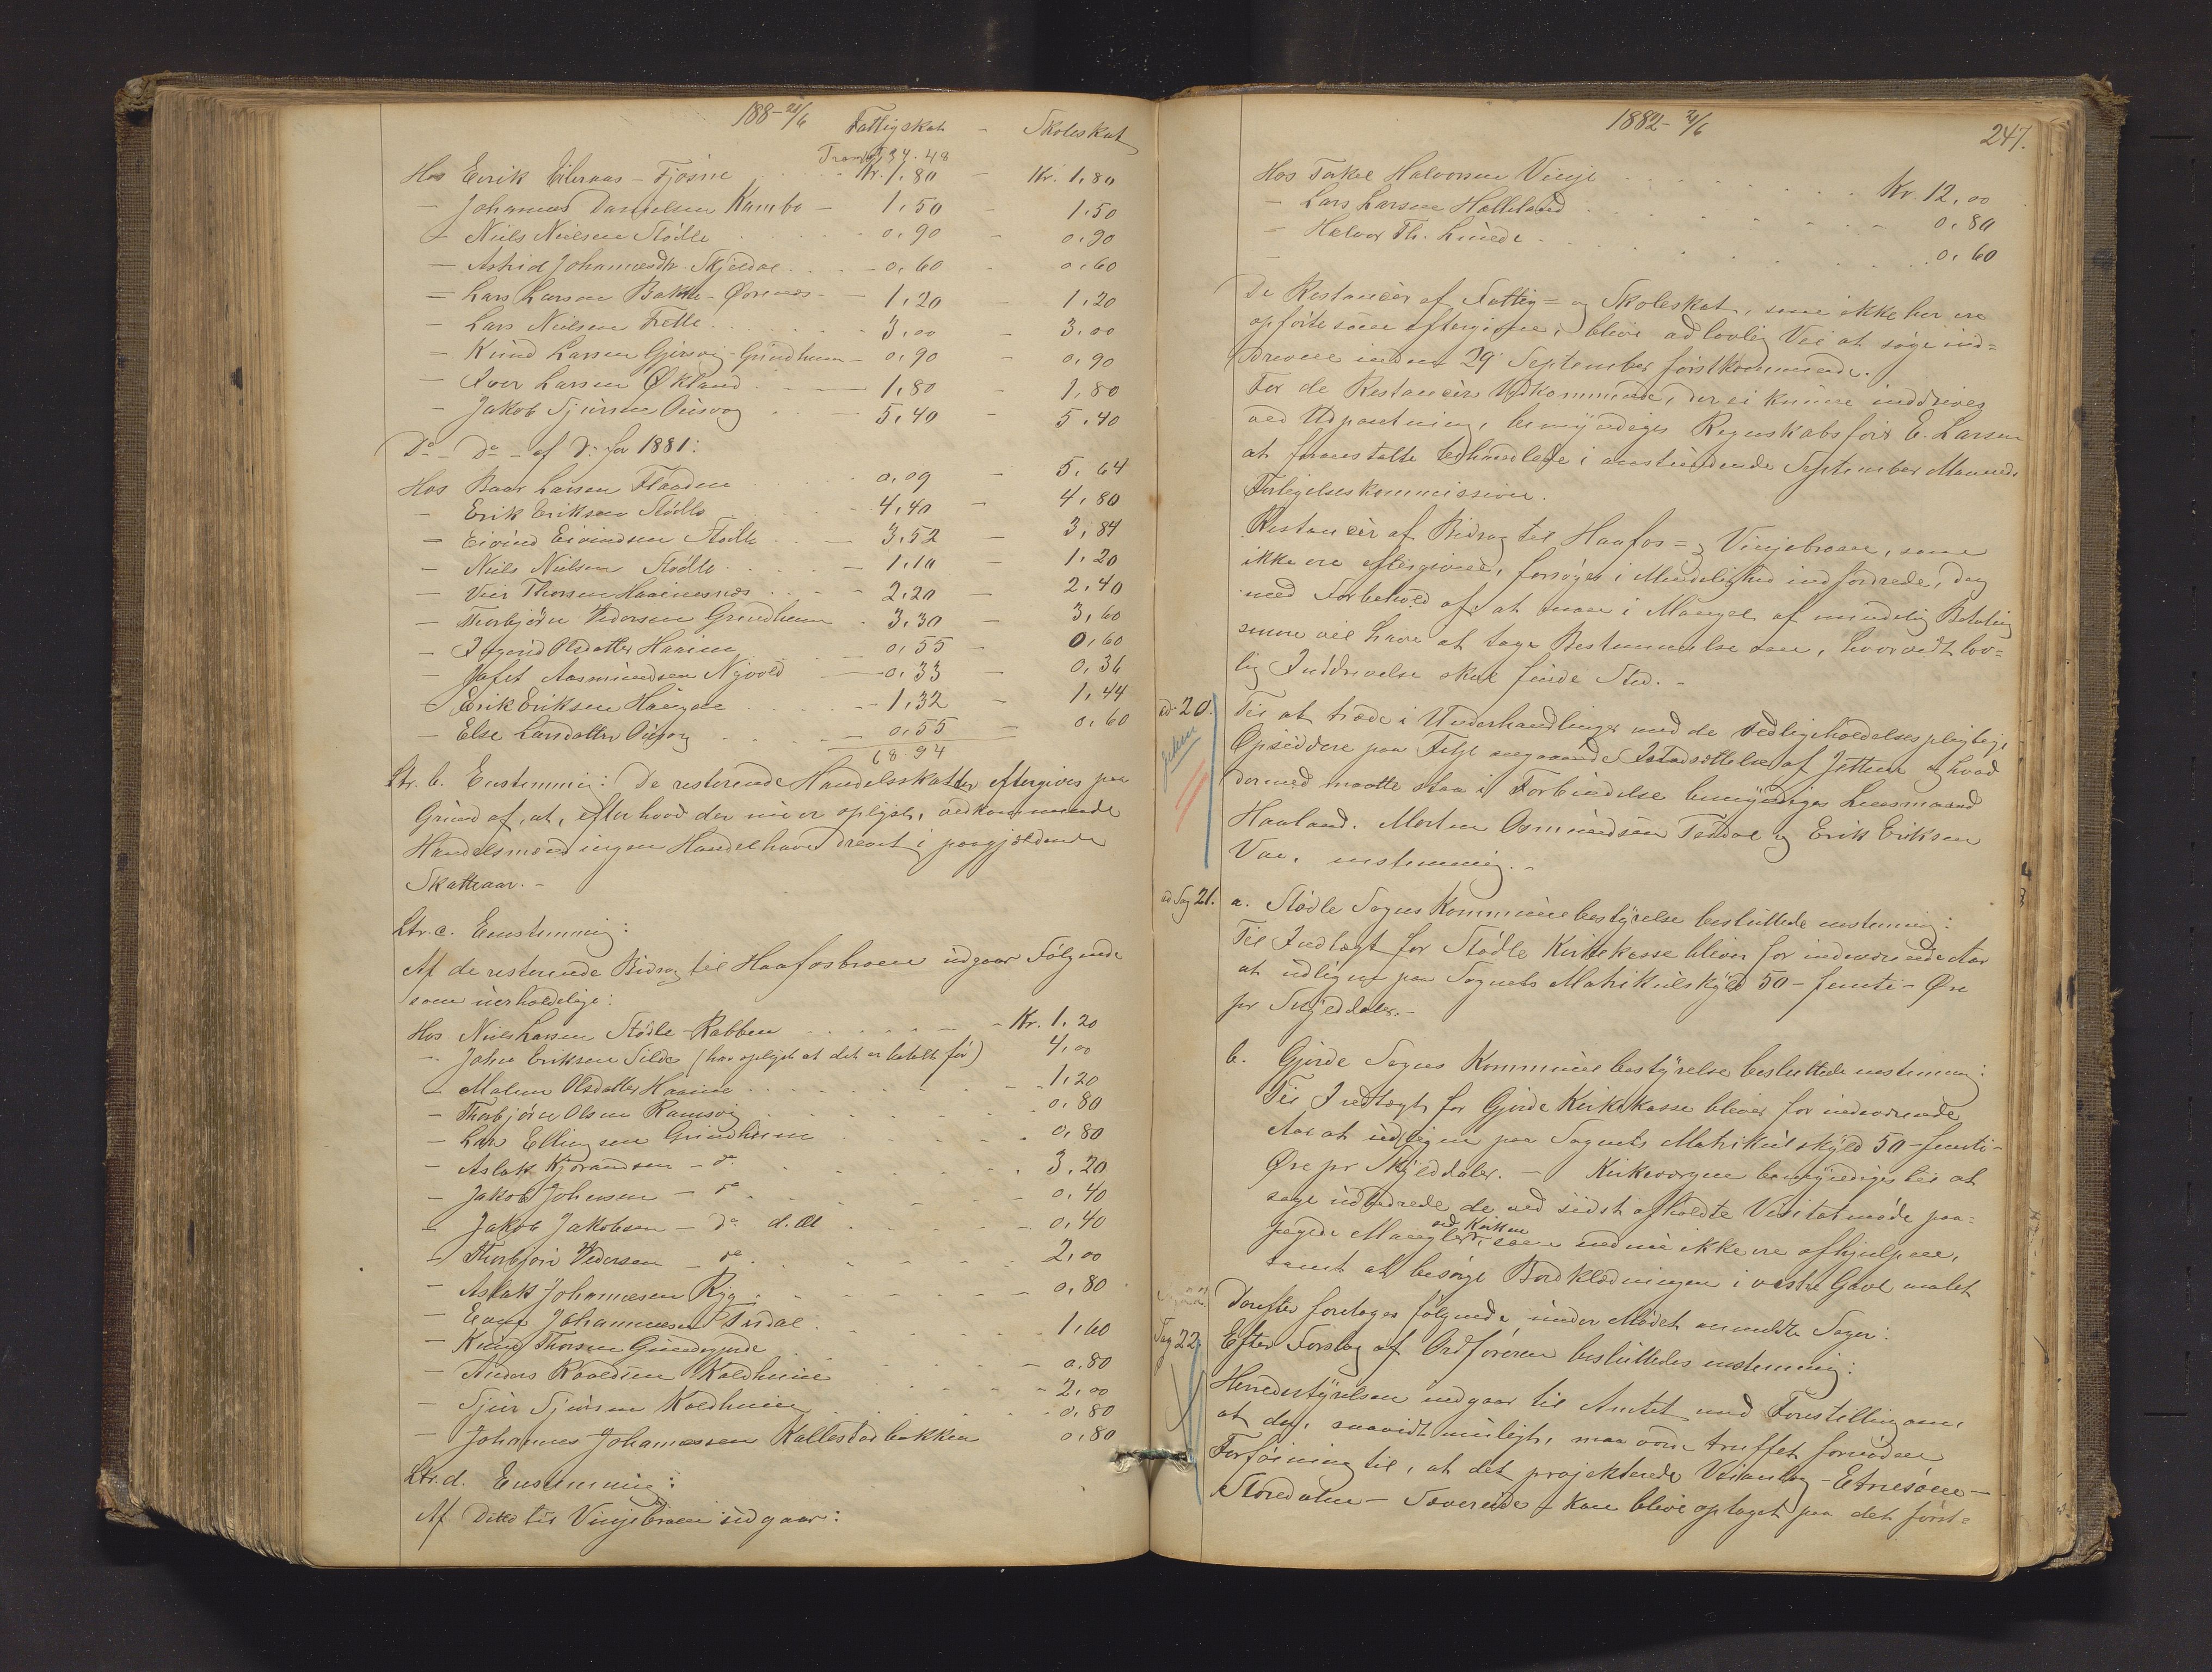 188- 21/6
Fattigskat - Skoleskat
Transpt 34.48
Hos Eirik Eileraas - Fjøsne Kr. 1,80 - Kr. 1,80
- Johannes Danielsen Kambo - 1,50 - 1,50
- Niels Nielsen Stødle 0,90 - 0,90
- Astrid Johannesdtr Skjeldal 0,60 - 0,60
- Lars Larsen Bakke - Ørenes - 1,20 - 1,20
- Lars Nielsen Frette 3,00 - 3,00
- Knud Larsen Gjersvig - Grindheim - 0,90 - 0,90
- Iver Larsen Økland 1,80 - 1,80
- Jakob Sjursen Ousvog 5,40 - 5,40
Do - Do - af Do for 1881:
Hos Baar Larsen Flaaden 0,09 - 5,64
- Erik Eriksen Stødle 4,40 - 4,80
- Eivind Eivindsen Stødle 3,52 - 3,84
- Niels Nielsen Stødle - 1,10 - 1,20
- Vier Thorsen Haaenesnæs 2,20 - 2,40
- Thorbjørn Vedersen Grindheim 3,30 - 3,60
- Ingerid Olsdatter Haaim 0,55 - 0,60
- Jafet Aasmundsen Nyvold - 0,33 - 0,36
- Erik Eriksen Haugen 1,32 - 1,44
- Else Larsdatter Ousvog 0,55 - 0,60
68.94
Ltr. b. Enstemmig: De resterende Handelsskatter eftergives paa
Grund af, at, efter hvad der nu er oplyst, vedkommende
Handelsmænd ingen Handel have drevet i paagjældende
Skatteaar. -
Ltr. c. Enstemmig:
Af de resterende Bidrag til Haafosbroen udgaar Følgende
som uerholdelige:
Hos Niels Larsen Stødle - Rabben - Kr. 1,20
- John Eriksen Silde (har oplyst at det er betalt før) 4,00
- Malene Olsdatter Haaim 1,20
- Thorbjørn Olsen Ramsvig 0,80
- Lars Ellingsen Grindheim 0,80
- Aslak Kjørandsen - do 3,20
- Jakob Johnsen - do 0,40
- Jakob Jakobsen - do d. æl 0,40
- Thorbjørn Vedersen - do 2,00
- Aslak Johannesen Ryg 0,80
- Enok Johannesen Tesdal
- Knud Thorsen Gundegjerde 1,60
- Anders Knudsen Koldheim 0,80
- Sjur Sjursen Koldheim 2,00
0,80
- Johannes Johannessen Kallestadbakken 0,80
Ltr. d. Enstemmig:
Af Ditto til Vinjebroen udgaar:
1882 - 21/6
247.
Hos Torkel Halvorsen Vinje Kr. 12,00
- Lars Larsen Hælleland 0,80
- Halvor Th. Lunde 0,60
De Restancer af Fattig= og Skoleskat, som ikke her ere
opførte som eftergivne, blive ad lovlig Vei at søge ind=
drevne inden 29 September førstkommende.
For de Restancers Vedkommende, der ei kunne inddrives
ved Udpantning, bemyndiges Regnskabsfører E. Larsen
at foranstalte i anstundende September Maaneds
Forligelseskommission.
Restancer af Bidrag til Haafos= og Vinjebroen, som
ikke ere eftergivne, forsøges i Mindelighed indfordrede, dog
med Forbehold af, at man i Mangel af mindelig Betaling
senere vil have at tage Bestemmelse om, hvorvidt lov=
lig Inddrivelse skal finde Sted. -
ad 20. Til at træde i Underhandlinger med de vedligeholdelsespligtige
Opsiddere paa Fitje angaaende Istandsættelse af Jetteen og hvad
dermed maatte staa i Forbindelse bemyndiges Lensmand
Haaland, Morten Osmundsen Tesdal og Erik Eriksen
Vae, enstemmig. -
ad Sag 21. a. Stødle Sogns Kommunebestyrelse besluttede enstemmig:
Til Indtægt for Stødle Kirkekasse bliver for indeværende Aar
at udligne paa Sognets Matrikulskyld 50 - femti - Øre
pr Skylddaler. -
b. Gjerde Sogns Kommunebestyrelse besluttede enstemmig:
Til Indtægt for Gjerde Kirkekasse bliver for indeværende
Aar at udligne paa Sognets Matrikulskyld 50 - femti -
Øre pr Skylddaler. - Kirkeværgene bemyndiges til at
søge udbedrede de ved sidst afholdte Visitatsmøde paa=
pegede Mangler ved Kirken, som endnu ikke ere afhjulpne,
samt at besørge Bordklædningen i vestre Gavl malet
Derefter foretoges følgende under Mødet anmeldte Sager:
Sag 22. Efter Forslag af Ordføreren besluttedes enstemmig:
Herredsstyrelsen indgaar til Amtet med Forestilling om,
at der, saavidt muligt, maa vorde truffet fornøden
Forføining til, at det projekterede Veianlæg - Etnesøen -
Storedalen - Saverede - kan blive optaget paa det først=